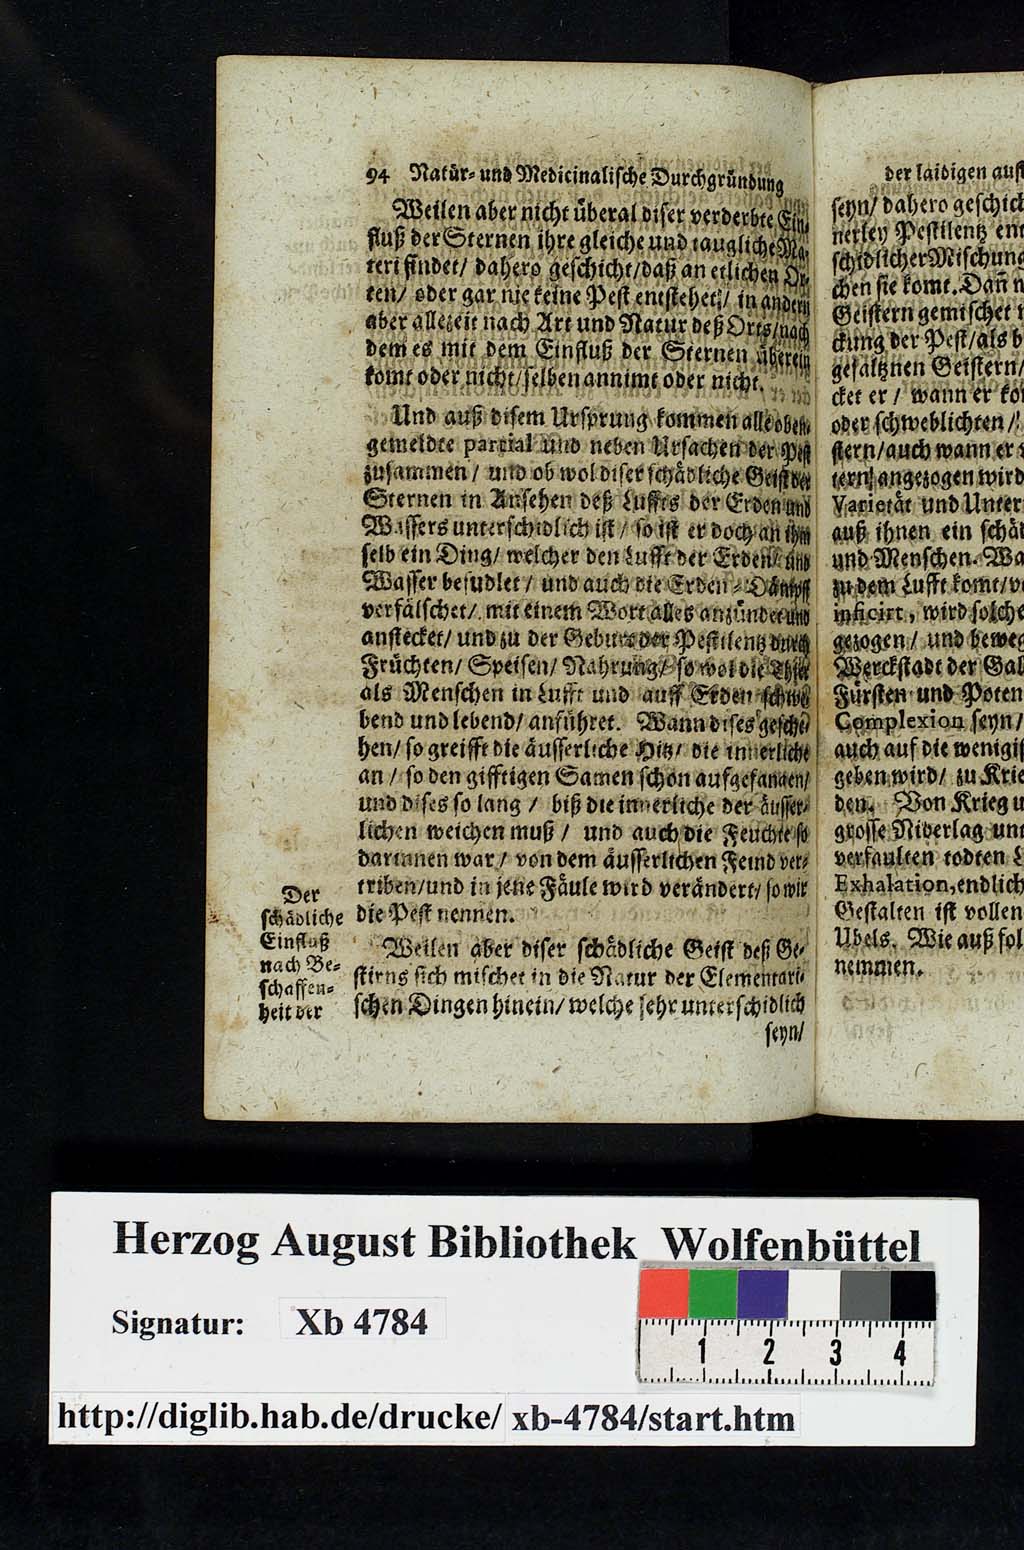 94 Natür- und Medicinalische Durchgründung
Weilen aber nicht überal diser verderbte Ein-
fluß der Sternen ihre gleiche und taugliche Ma-
teri findet/ dahero geschicht/ daß an etlichen Or-
ten/ oder gar nie keine Pest entstehet/ in andern
aber allezeit nach Art und Natur deß Orts/ nach
dem es mit dem Einfluß der Sternen überein
komt oder nicht/ selben annimt oder nicht.
Und auß disem Ursprung kommen alle oben-
gemeldte partial und neben Ursachen der Pest
zusammen/ und ob wol diser schädliche Geist der
Sternen in Ansehen deß Luffts der Erden und
Wassers unterschidlich ist/ so ist er doch an ihm
selb ein Ding/ welcher den Lufft der Erden/ und
Wasser besudlet/ und auch die Erden-Dämpff
verfälschet/ mit einem Wort alles anzündet und
anstecket/ und zu der Geburt der Pestilentz durch
Früchten/ Speisen/ Nahrung/ so wol die Thier
als Menschen in Lufft und auff Erden schwe-
bend und lebend/ anführet. Wann dises gesche-
hen/ so greifft die äusserliche Hitz/ die innerliche
an/ so den gifftigen Samen schon aufgefangen/
und dises so lang/ biß die innerliche der äusser-
lichen weichen muß/ und auch die Feuchte so
darinnen war/ von dem äusserlichen Feind ver-
triben/ und in jene Fäule wird verändert/ so wir
die Pest nennen.
Der
schädliche
Einfluß
nach Be-
schaffen-
heit der
Weilen aber diser schädliche Geist deß Ge-
stirns sich mischet in die Natur der Elementari-
schen Dingen hinein/ welche sehr unterschidlich
seyn/
der laidigen
seyn/ dahero
nerley Pestilentz
schidlicher Mischung
chen sie komt. Dañ
Geistern gemischet
ckung der Pest/ als
gesaltznen Geistern/
cket er/ wann er
oder schweblichten/
stern/ auch wann er
tern angezogen wird
Varietät und
auß ihnen ein
und Menschen.
zu dem Lufft komt/
inficirt, wird solche
gezogen/ und
Werckstadt der
Fürsten und
Complexion seyn/
auch auf die
geben wird/ zu
den. Von Krieg
grosse Niderlag
verfaulten todten
Exhalation, endlich
Gestalten ist
Ubels. Wie auß
nemmen.
Herzog August Bibliothek Wolfenbüttel
Signatur: Xb 4784
1 2 3 4
http://diglib.hab.de/drucke/ xb-4784/start.htm